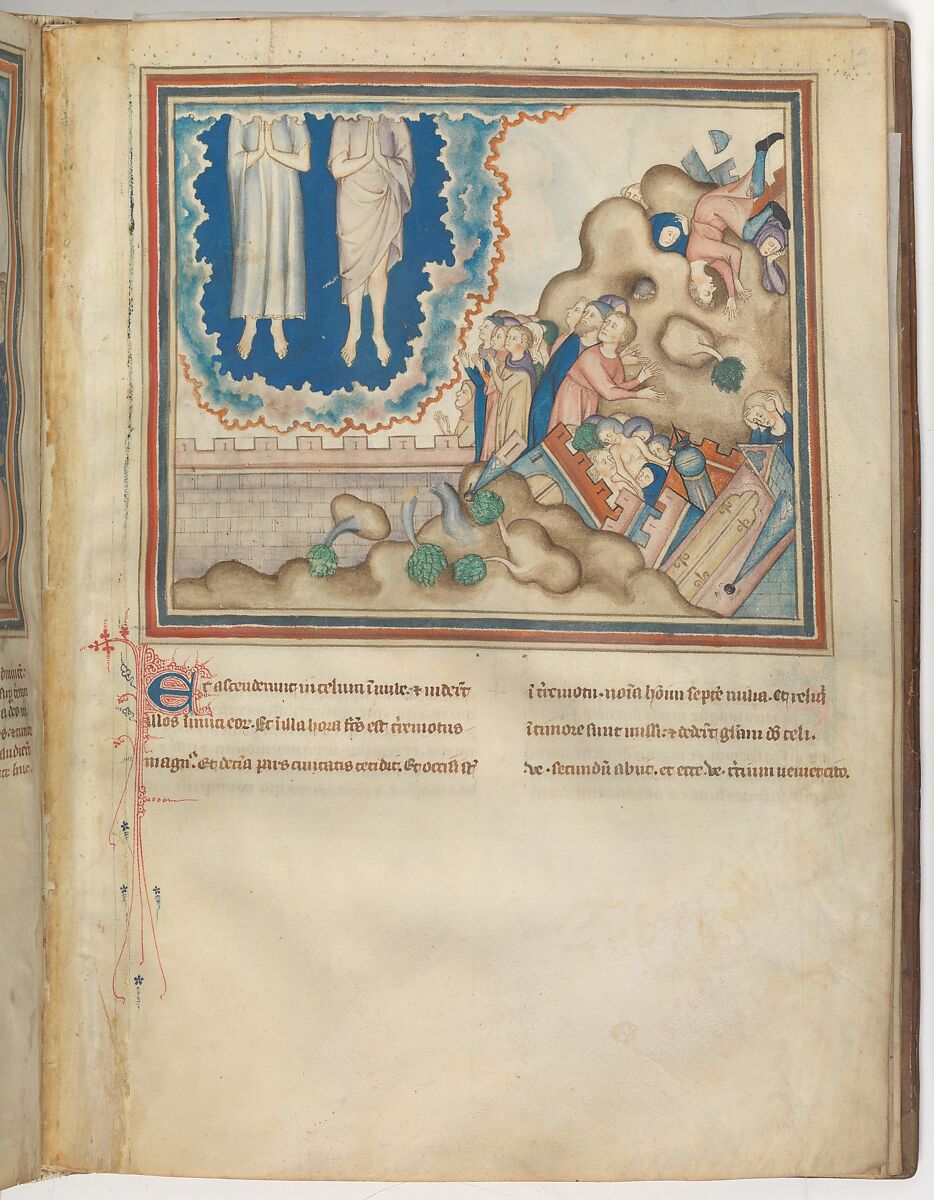 Et ascenderunt in celum i nube. & uider̄t
illos inimici eor. Et in illa hora fcs̄ est t̄remotus
magn⁹. Et decīa pars ciuitatis cecidit. Et occisi st̄
ī t̄remotu. noīa hōīm septē milia. Et reliq̄
ī timore sunt missi. & deder̄t gl̄iam dō celi.
Ve. secundū abiit. et ecce ve. t̄cium ueniet cito.